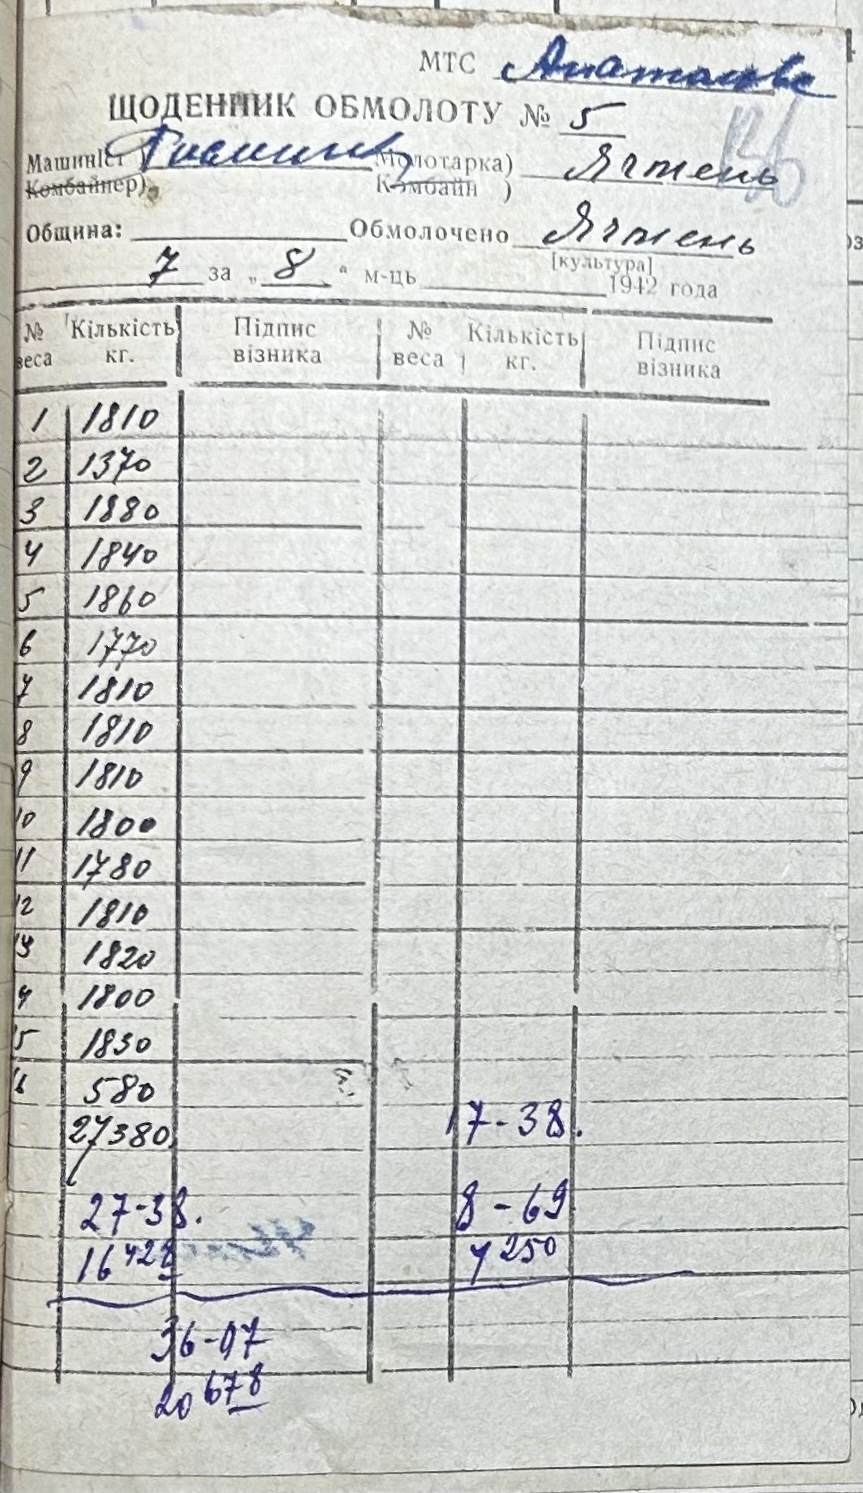 МТС
ЩОДЕННИК ОБМОЛОТУ № 5
Машиніст ) Молотарка) Ячмень
Комбайнер) Комбайн )
Община: Обмолочено Ячмень
[культура]
7 за „ 8 “ м-ць 1942 года
№ веса Кількість кг. Підпис візника № веса Кількість кг. Підпис візника
1 1810
2 1370
3 1880
4 1840
5 1860
6 1770
7 1810
8 1810
9 1810
10 1800
11 1780
12 1810
13 1820
14 1800
15 1830
16 580
27380 17-38.
27-38. 8-69
16428 4250
36-07
20678